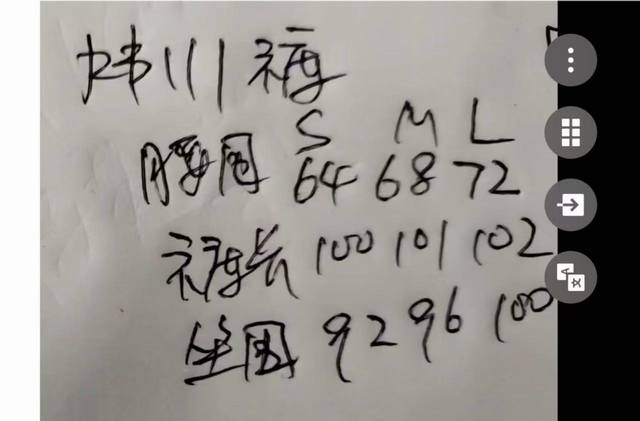 炜川裤
S M L
腰围 64 68 72
裤长 100 101 102
坐围 92 96 100